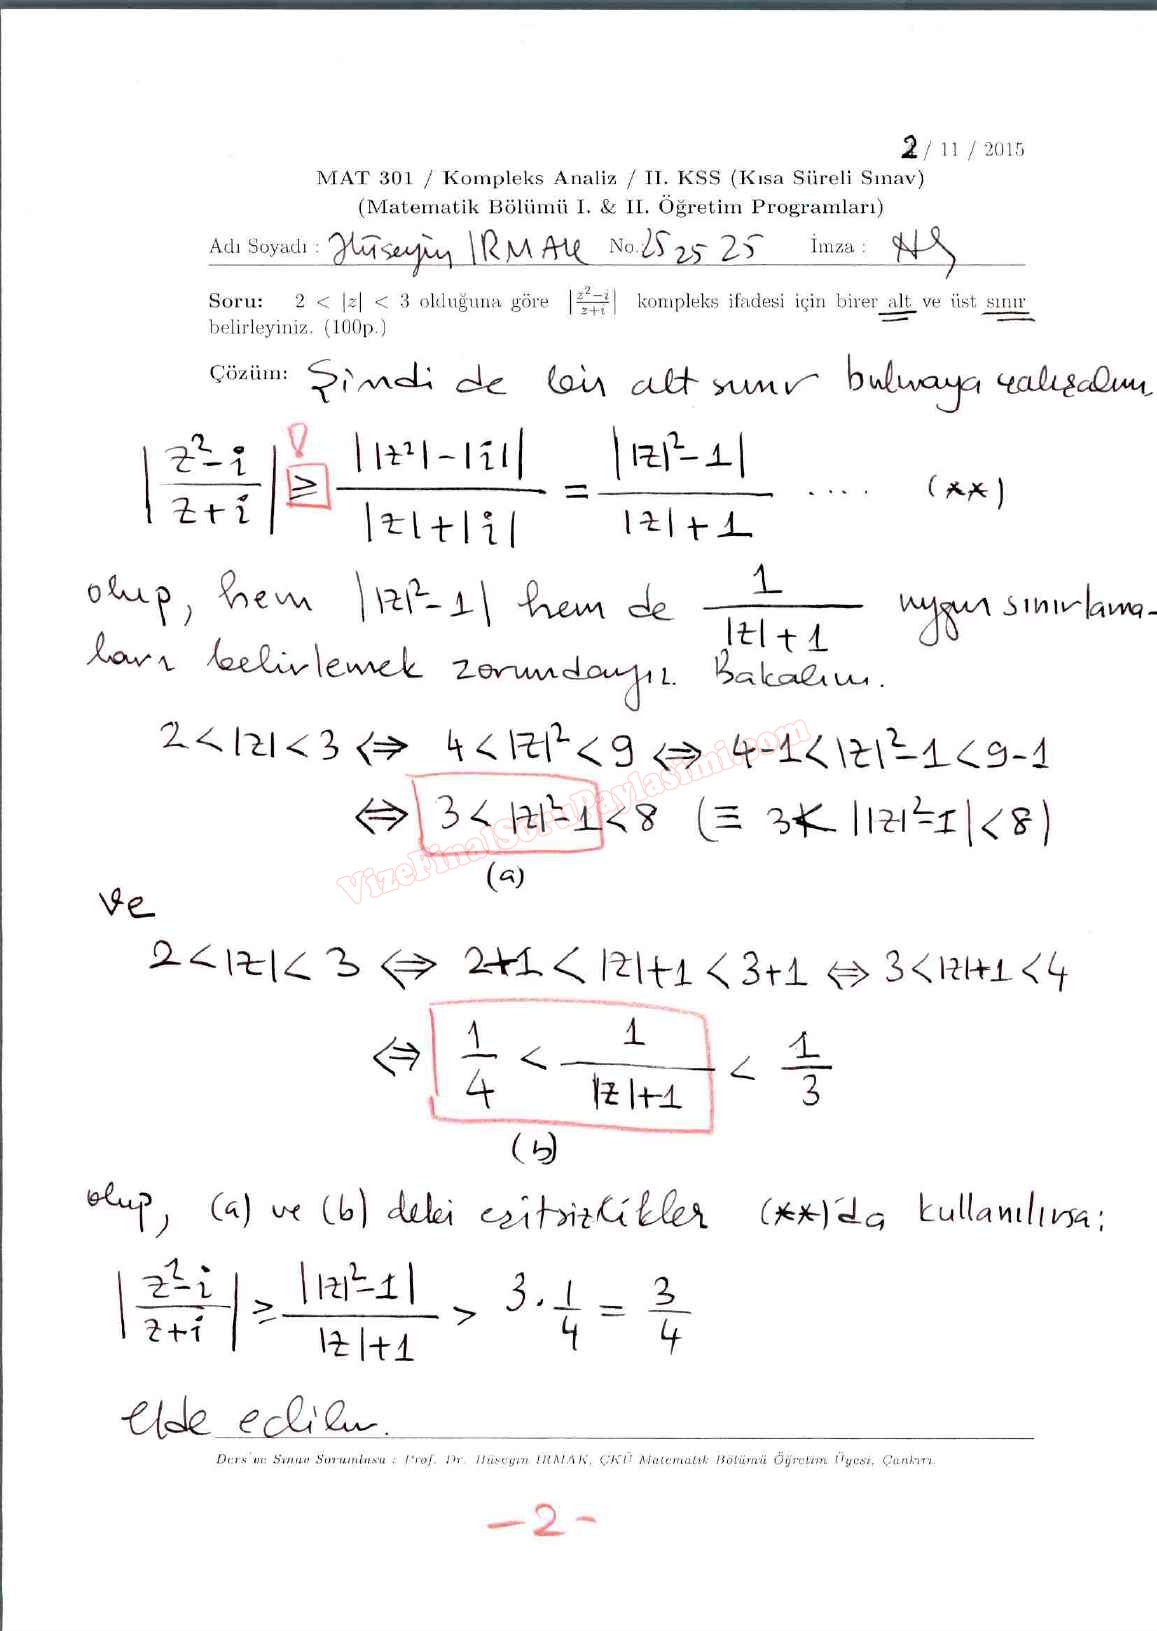 2 / 11 / 2015
MAT 301 / Kompleks Analiz / II. KSS (Kısa Süreli Sınav)
(Matematik Bölümü I. & II. Öğretim Programları)
Adı Soyadı : Hüseyin IRMAK No.252525 İmza :
Soru: 2 < |z| < 3 olduğuna göre |z²−i / z+i| kompleks ifadesi için birer alt ve üst sınır
belirleyiniz. (100p.)
Çözüm: Şimdi de bir alt sınır bulmaya çalışalım.
|z²−i / z+i| ≥ ||z²|−|i|| / |z|+|i| = ||z|²−1| / |z|+1 .... (**)
!
olup, hem ||z|²−1| hem de 1 / |z|+1 uygun sınırlama-
ları belirlemek zorundayız. Bakalım.
2<|z|<3 ⇔ 4<|z|²<9 ⇔ 4−1<|z|²−1<9−1
⇔ 3<|z|²−1<8 (≡ 3<||z|²−1|<8)
(a)
ve
2<|z|<3 ⇔ 2+1<|z|+1<3+1 ⇔ 3<|z|+1<4
⇔ 1/4 < 1 / |z|+1 < 1/3
(b)
olup, (a) ve (b) deki eşitsizlikler (**)'da kullanılırsa;
|z²−i / z+i| ≥ ||z|²−1| / |z|+1 > 3.1/4 = 3/4
elde edilir.
Ders ve Sınav Sorumlusu : Prof. Dr. Hüseyin IRMAK, ÇKÜ Matematik Bölümü Öğretim Üyesi, Çankırı.
-2-
VizeFinalSoruPaylasimi.com